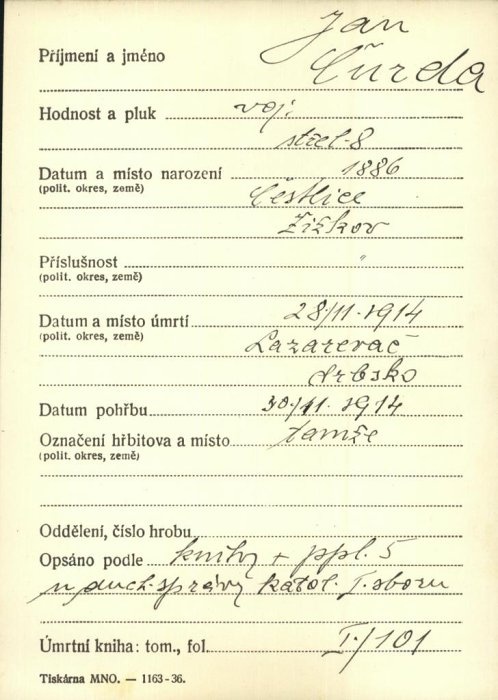 Jan
Příjmení a jméno Čurda
Hodnost a pluk voj.
střel-8
Datum a místo narození 1886
(polit. okres, země) Čestlice
Žižkov
Příslušnost "
(polit. okres, země)
Datum a místo úmrtí 28/11. 1914
(polit. okres, země) Lazarevač
Srbsko
Datum pohřbu 30/11. 1914
Označení hřbitova a místo tamže
(polit. okres, země)
Oddělení, číslo hrobu
Opsáno podle knihy + ppl. 5
n duch. správy katol. I. sboru
Úmrtní kniha: tom., fol. I./101
Tiskárna MNO. — 1163-36.